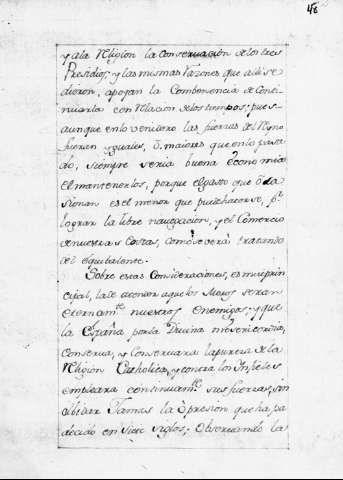 48
y ala Religion la Conservacion de los tres
Presidios; y las mismas razones que alli se
dieron, apoyan la Combeniencia de Conti-
nuarla con Relacion de los tempos; pues
aunque en lo venidero las fuerzas del Reyno
fueran yguales, ó maiores que en lo pasa-
do, siempre seria buena economia
el mantenerlos, porque el gasto que óca
sionan es el menor que puede hacerse, pª
lograr la libre navegacion, y el Comercio
de nuestras Costas, como se verá tratando
del equibalente.
Sobre estas Consideraciones, es mui prin
cipal, la de aconsen aque los Moros seran
eternamte nuestros Enemigos; y que
la España por la Divina misericordia,
Conserva, y Conservara la pureza de la
Religion Catholica, y contra los Infieles
empleara continuamte sus fuerzas, sin
olbidar Jamas la Opresion que ha pa
decido en Siete Siglos; Observando la